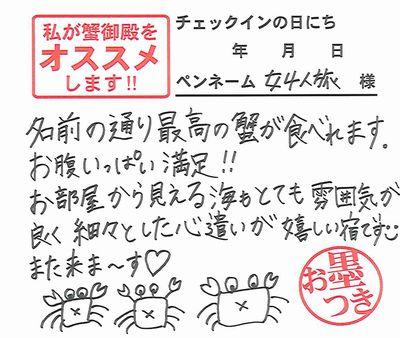 私が蟹御殿を
オススメ
します!!
チェックインの日にち
年 月 日
ペンネーム 女4人旅 様
名前の通り最高の蟹が食べれます。
お腹いっぱい満足!!
お部屋から見える海もとても雰囲気が
良く細々とした心遣いが嬉しい宿です
また来ま〜す♡
お墨つき